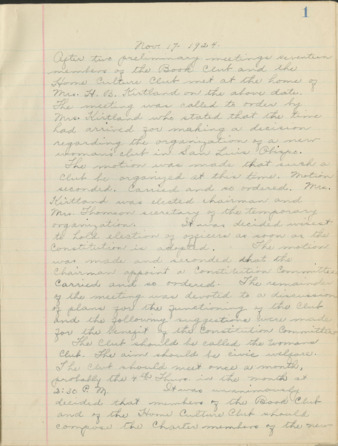 1
Nov. 19. 1924.
After two preliminary meetings
members of the Book Club and the
Home Culture Club met at the home of
Mrs. H. B. Kirtland on the above date.
The meeting was called to order by
Mrs. Kirtland who stated that the time
had arrived for making a decision
regarding the organization of a new
womans club in San Luis Obispo.
The motion was made that such a
Club be organized at this time. Motion
seconded. Carried and so ordered. Mrs.
Kirtland was elected chairman and
Mrs. Thomson secretary of the temporary
organization. It was decided
to hold election of officers as soon as the
Constitution is adopted. The motion
was made and seconded that the
Chairman appoint a Constitution Committee
Carried and so ordered. The remainder
of the meeting was devoted to a discussion
of plans for the functioning of the Club
and the following suggestions were made
for the benefit of the Constitution Committee.
The Club should be called the Womans
Club. The aim should be civic welfare.
The Club should meet once a month,
probably the 4th Thurs. in the month at
2:30 P.M. It was unanimously
decided that members of the Book Club
and of the Home Culture Club should
compose the Charter members of the new